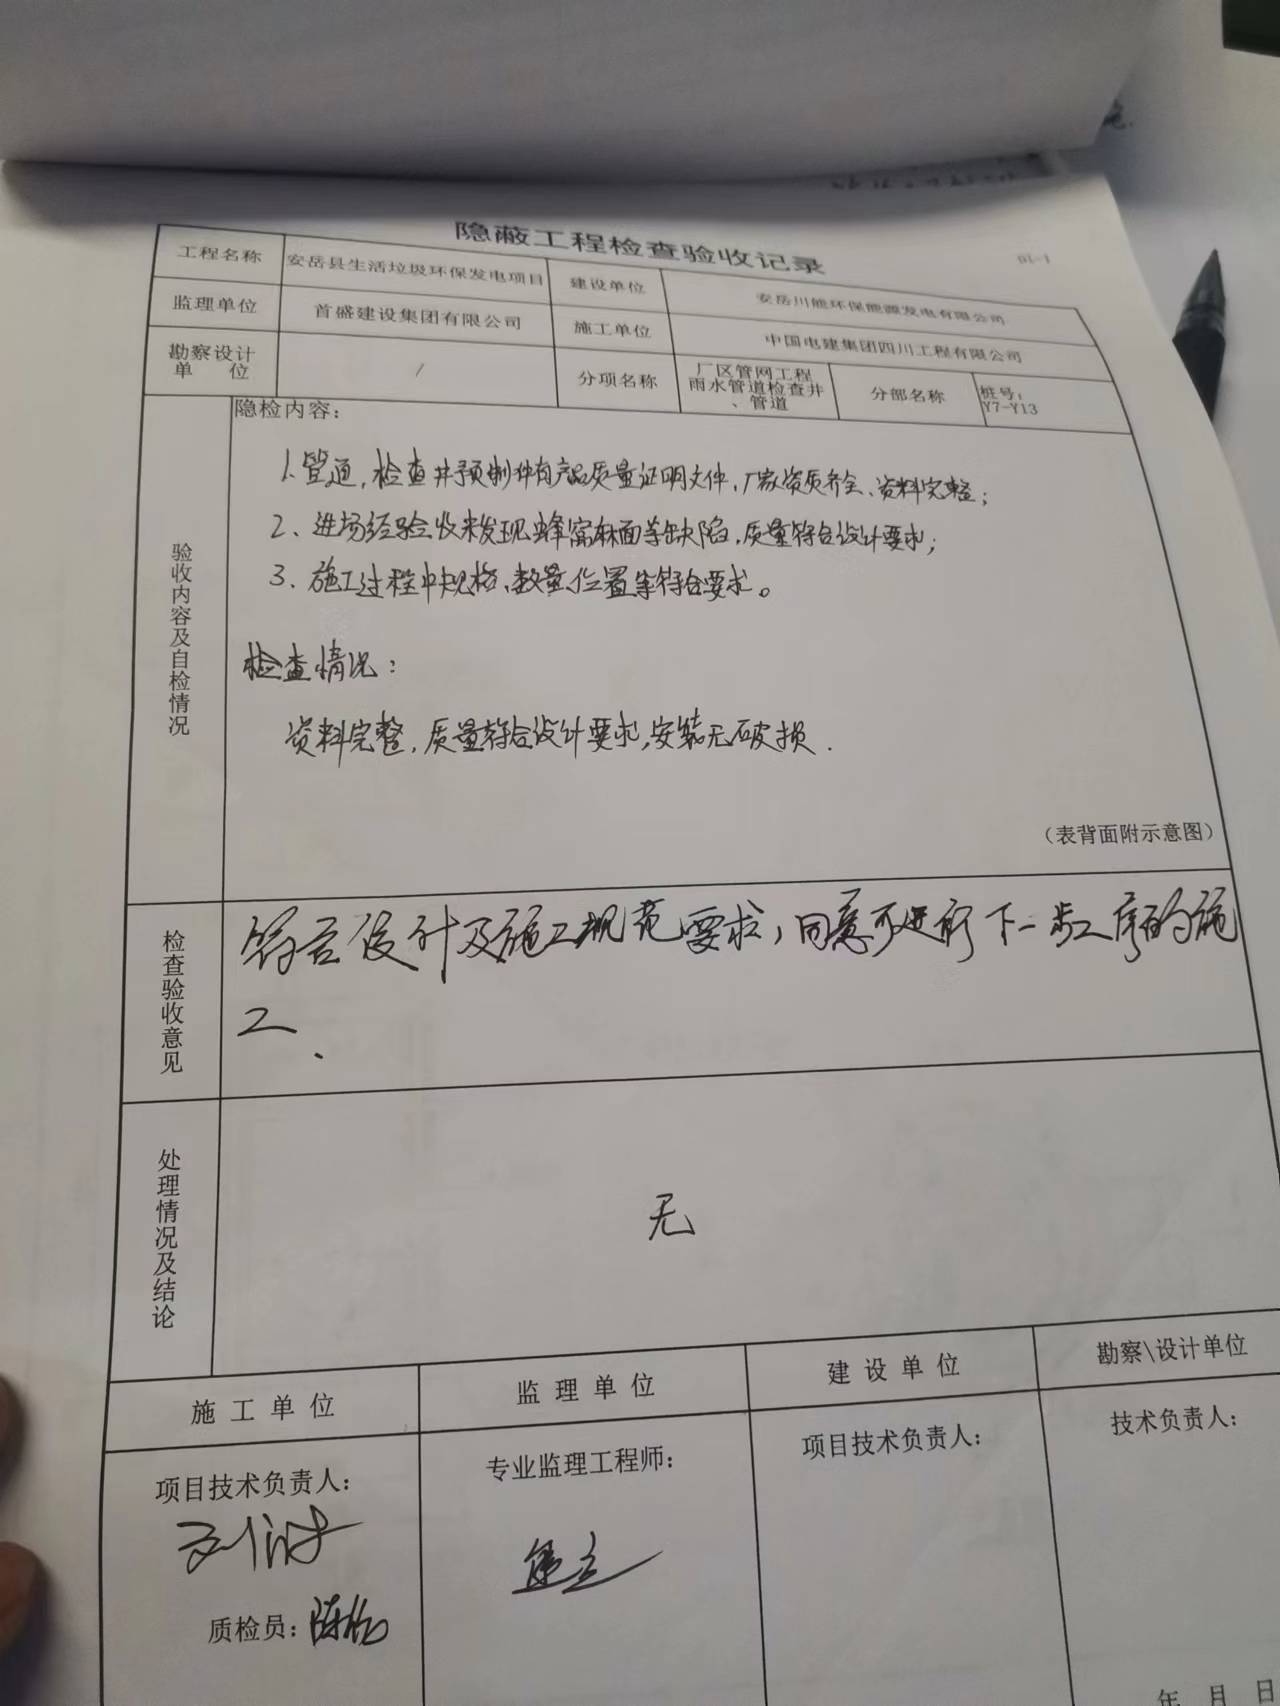 隐蔽工程检查验收记录
工程名称 安岳县生活垃圾环保发电项目 建设单位 安岳川能环保能源发电有限公司
监理单位 首盛建设集团有限公司 施工单位 中国电建集团四川工程有限公司
勘察设计单位 / 分项名称 厂区管网工程雨水管道检查井、管道 分部名称 桩号:Y7-Y13
验收内容及自检情况
隐检内容:
1.管道,检查井预制件有产品质量证明文件,厂家资质齐全、资料完整;
2、进场经验收未发现蜂窝麻面等缺陷,质量符合设计要求;
3、施工过程中规格、数量、位置等符合要求。
检查情况:
资料完整,质量符合设计要求,安装无破损.
(表背面附示意图)
检查验收意见
符合设计及施工规范要求,同意可进行下一步工序的施
工.
处理情况及结论
无
施工单位 监理单位 建设单位 勘察\设计单位
项目技术负责人: 专业监理工程师: 项目技术负责人: 技术负责人:
质检员:
年 月 日